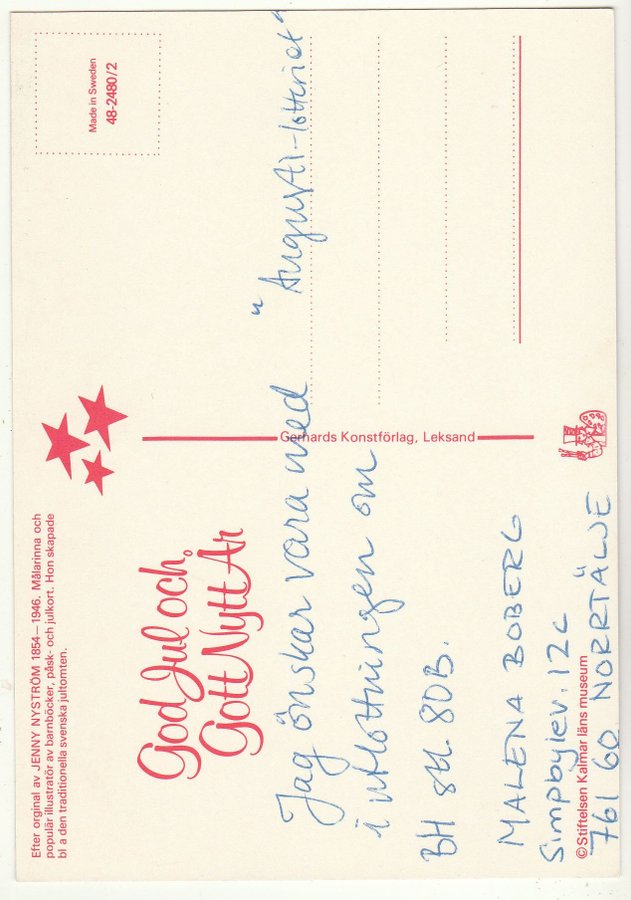 Efter orginal av JENNY NYSTRÖM 1854—1946. Målarinna och
populär illustratör av barnböcker, påsk- och julkort. Hon skapade
bl a den traditionella svenska jultomten.
Made in Sweden
48-2480/2
God Jul och
Gott Nytt År
Jag önskar vara med
i utlottningen om
BH stl. 80B.
Gerhards Konstförlag, Leksand
MALENA BOBERG
Simpbylev. 12c
761 60 NORRTÄLJE
©Stiftelsen Kalmar läns museum